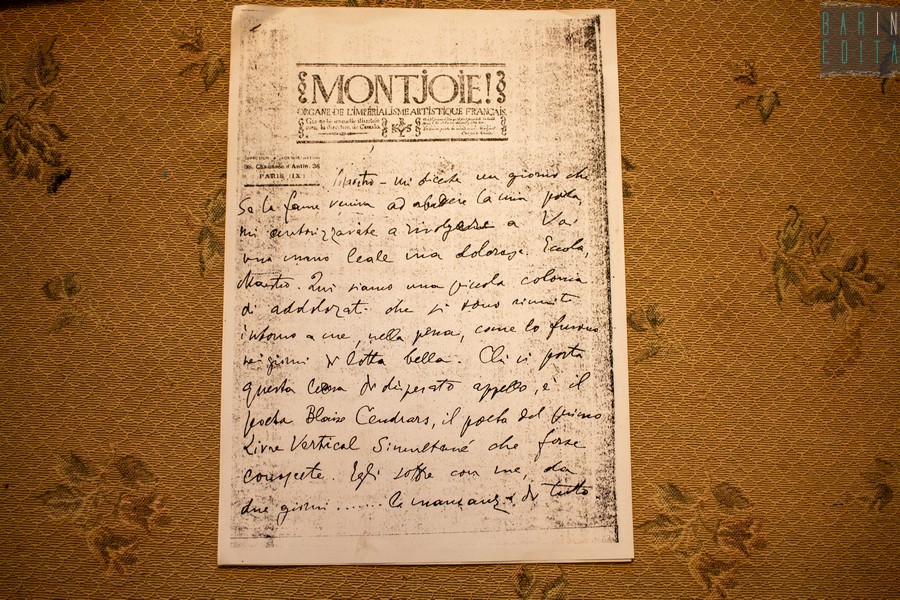 BARIN
EDITA
MONTJOIE!
ORGANE DE L'IMPÉRIALISME ARTISTIQUE FRANÇAIS
38, Chaussée d'Antin, 38
PARIS (IX)
Maestro - mi diceste un giorno che
se la fame veniva ad abbattere la mia porta
mi autorizzavate a rivolgere a Voi
una mano leale ma dolorosa. Eccola,
Maestro. Qui siamo una piccola colonia
di addolorati che si sono riuniti
intorno a me, nella pena, come lo furono
nei giorni di lotta bella. Chi vi porta
questa di disperato appello, è il
poeta Blaise Cendrars, il poeta del primo
Livre Vertical Simultané che forse
conoscete. Egli soffre con me, da
due giorni ...... la mancanza di tutto